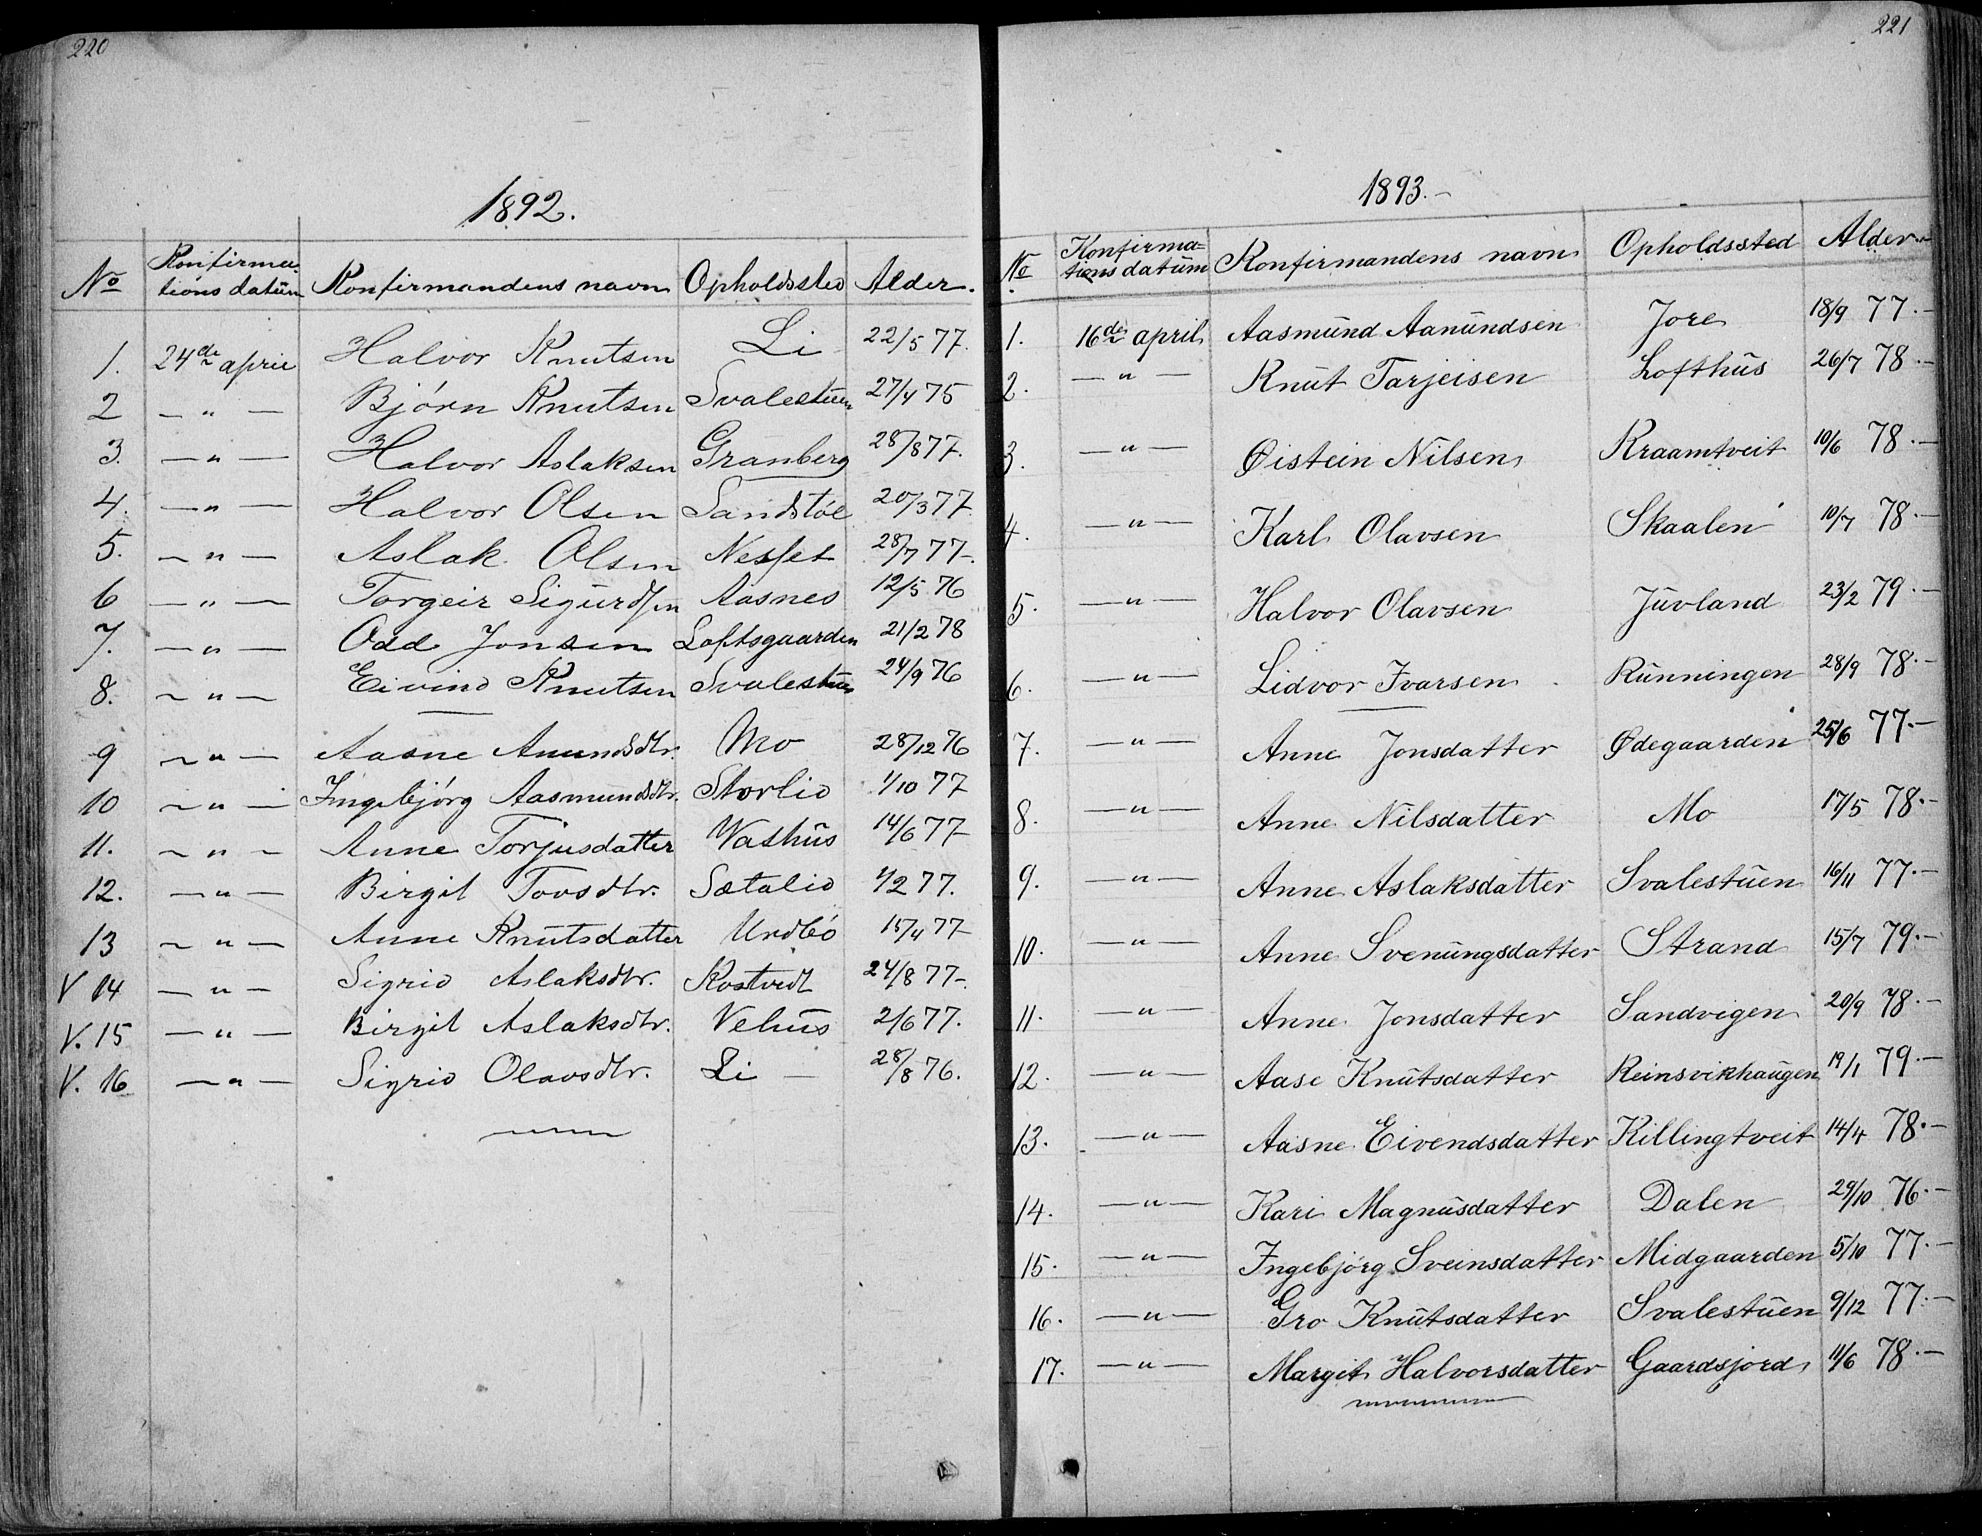 220
1892.
No Konfirma- tions datūm Konfirmandens navn Opholdssted Alder.
1. 24de april Halvor Knutsen Li 22/5 77.
2 — " — Bjórn Knutsen Svalestuen 27/4 75
3. — " — Halvor Aslaksen Granberg 28/8 77.
4. — " — Halvor Olsen Sandstól 20/3 77
5. — " — Aslak Olsen Nesset 28/7 77-.
6 — " — Torgeir Sigurdsen Aasnes 12/5 76
7. — " — Odd Jonsen Loftsgaarden 21/2 78
8. — " — Eivind Knutsen Svalestuen 24/9 76
9 — " — Aasne Anundsdtr. Mo 28/12 76
10 — " — Ingebjórg Aasmundsdtr. Storlid 1/10 77
11. — " — Anne Torjusdatter Vashūs 14/6 77-
12. — " — Birgit Tovsdtr. Sætalid 1/2 77.
13 — " — Anne Knūtsdatter Urdbó 15/4 77-
V 14 — " — Sigrid Aslaksdtr. Rostveit 24/8 77-.
V. 15 — " — Birgit Aslaksdtr. Vehūs 2/6 77.
V. 16 — " — Sigrid Olavsdtr. Li — 28/8 76.
221
1893.-
No Konfirma= tions datūm Konfirmandens navn Opholdssted Alder
1. 16de april Aasmūnd Aanūndsen Jore 18/9 77.-
2. — " — Knūt Tarjeisen Lofthūs 26/7 78.-
3. — " — Øistein Nilsen Kraamtveit 10/6 78.-
4. — " — Karl Olavsen Skaalen 10/7 78.-
5. — " — Halvor Olavsen Jūvland 23/2 79.-
6. — " — Lidvor Ivarsen Rūnningen 28/9 78.-
7. — " — Anne Jonsdatter Ødegaarden 25/6 77.-
8. — " — Anne Nilsdatter Mo 17/5 78.-
9. — " — Anne Aslaksdatter Svalestūen 16/11 77.-
10. — " — Anne Svenūngsdatter Strand 15/7 79.-
11. — " — Anne Jonsdatter Sandvigen 20/9 78.-
12. — " — Aase Knūtsdatter Reinsvikhaūgen 19/1 79.-
13. — " — Aasne Eivendsdatter Killingtveit 14/4 78.-
14. — " — Kari Magnūsdatter Dalen 29/10 76.-
15. — " — Ingebjórg Sveinsdatter Midgaarden 5/10 77.-
16. — " — Gro Knūtsdatter Svalestūen 9/12 77.-
17. — " — Margit Halvorsdatter Gaardsjord 11/6 78.-